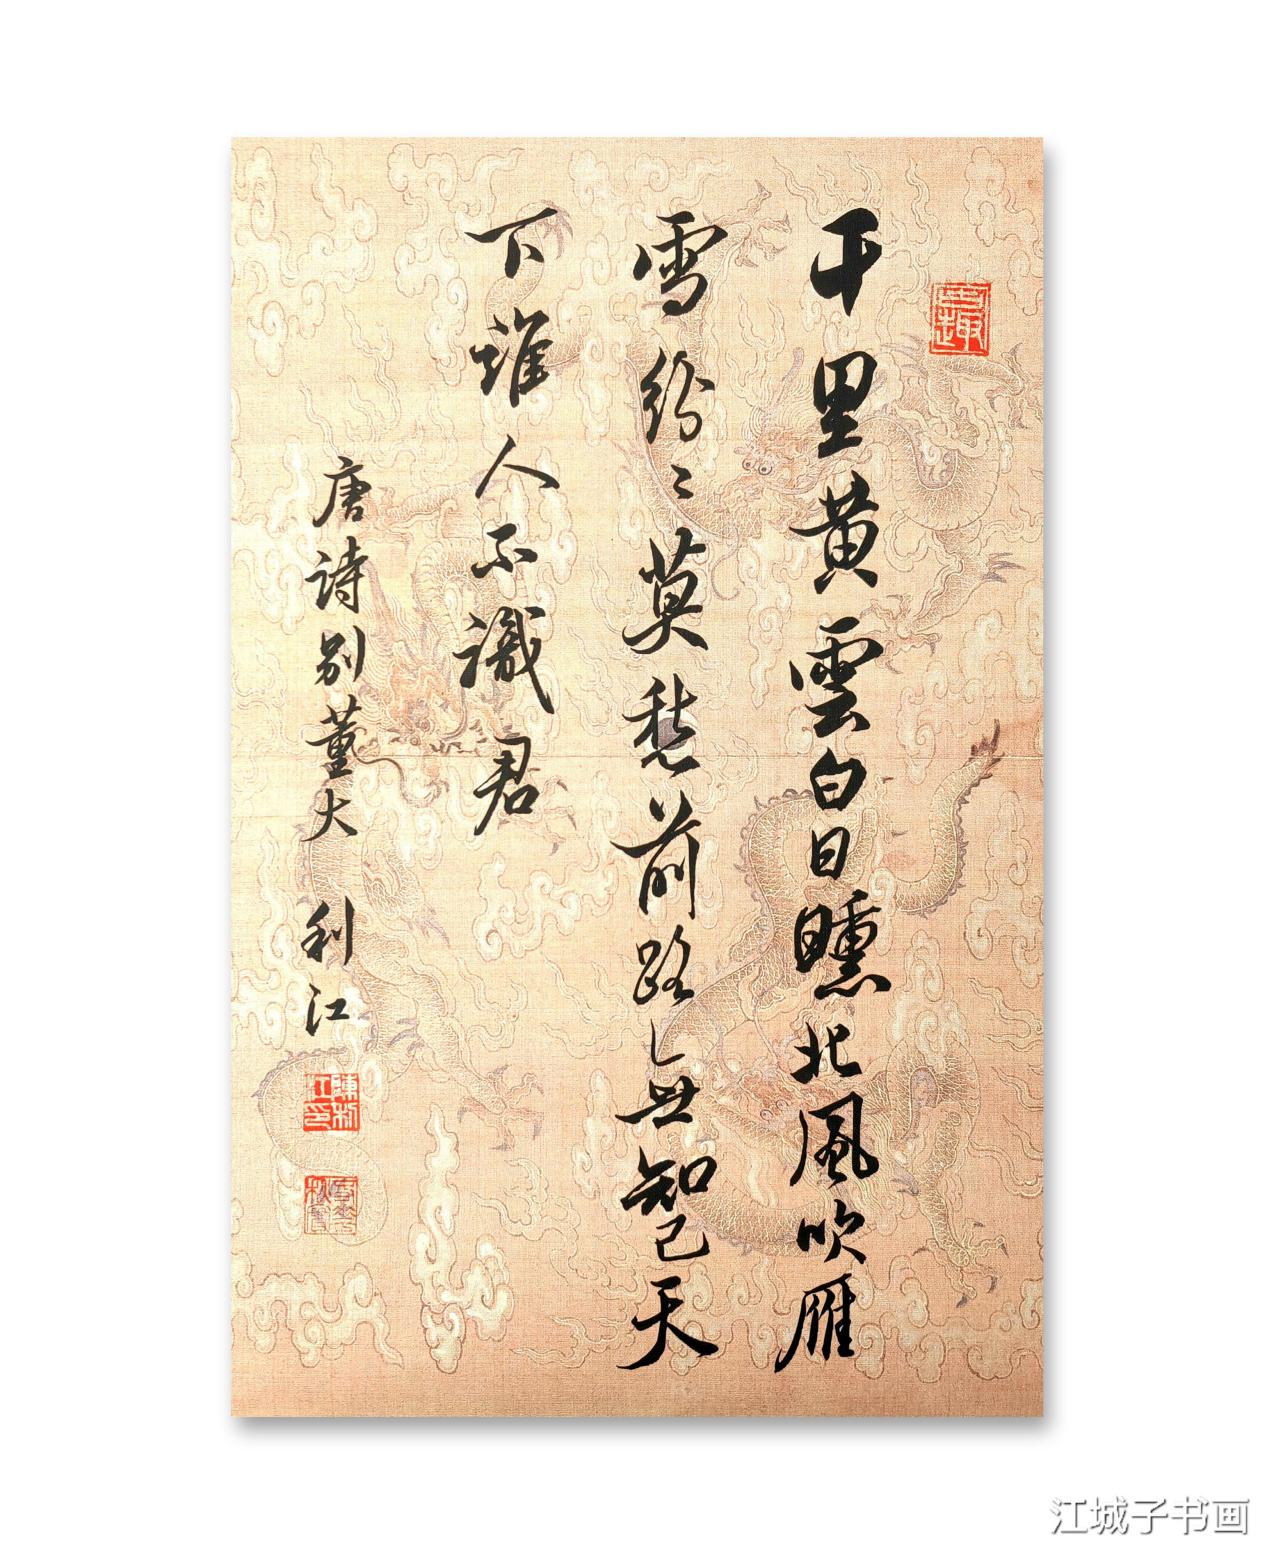 千里黄雲白日曛北風吹雁
雪紛〻莫愁前路〻無知己天
下誰人不識君
唐詩别董大 利江
陳利江印
江城子书画